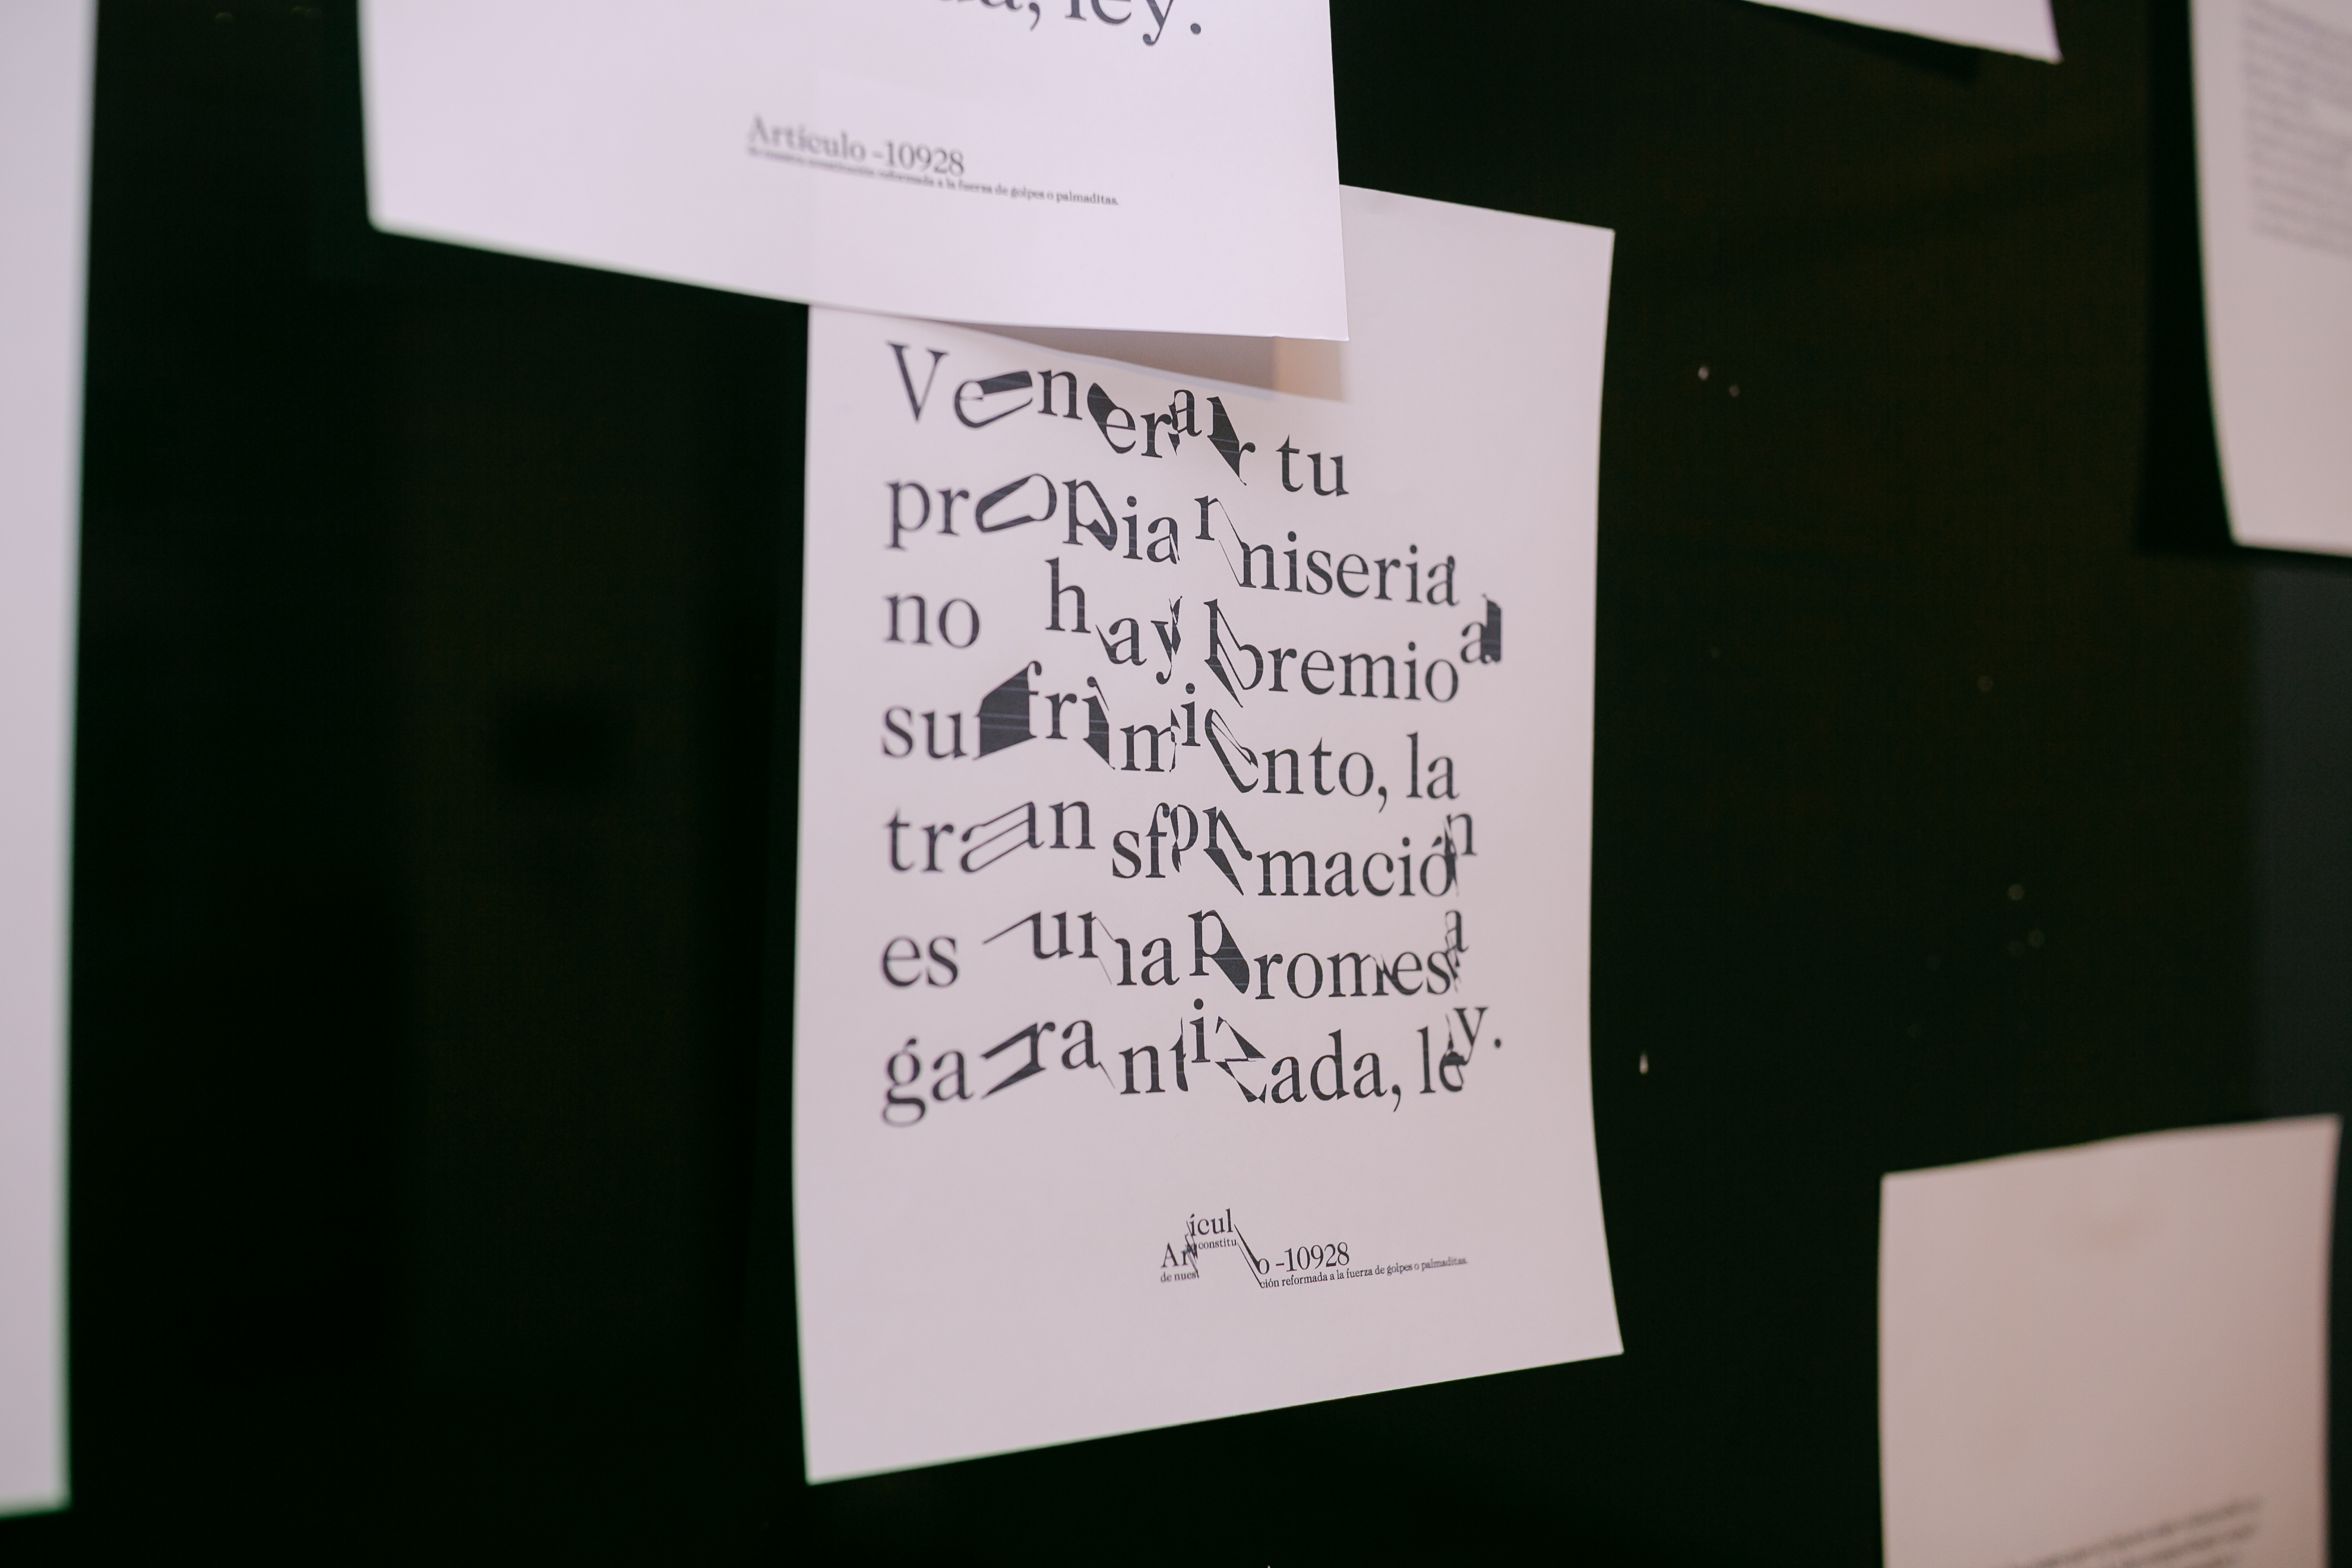 ley.
Artículo -10928
de nuestra constitución reformada a la fuerza de golpes o palmaditas.
Venerar tu
propia miseria
no hay premio al
sufrimiento, la
transformación
es una promesa
garantizada, ley.
Artículo -10928
de nuestra constitución reformada a la fuerza de golpes o palmaditas.